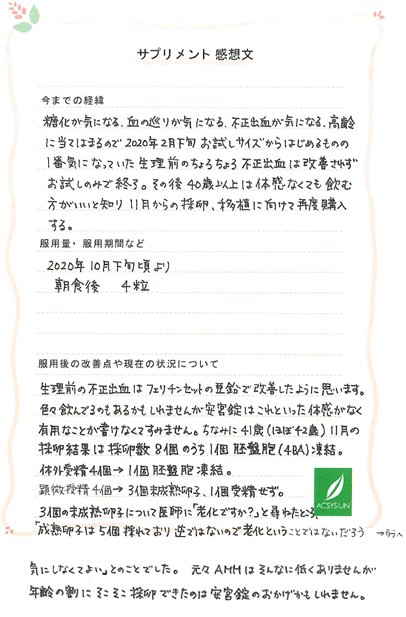 サプリメント 感想文
今までの経緯
糖化が気になる、血の巡りが気になる、不正出血が気になる、高齢
に当てはまるので2020年2月下旬お試しサイズからはじめるものの
1番気になっていた生理前のちょろちょろ不正出血は改善されず
お試しのみで終了。その後40歳以上は体感なくても飲む
方がいいと知り11月からの採卵、移植に向けて再度購入
する。
服用量・服用期間など
2020年10月下旬頃より
朝食後 4粒
服用後の改善点や現在の状況について
生理前の不正出血はフェリチンセットの亜鉛で改善したように思います。
色々飲んでるのもあるかもしれませんが安宮錠はこれといった体感がなく
有用なことが書けなくてすみません。ちなみに41歳(ほぼ42歳)11月の
採卵結果は採卵数8個のうち1個胚盤胞(4BA)凍結。
体外受精4個→1個胚盤胞凍結。
顕微授精4個→3個未成熟卵子、1個受精せず。
3個の未成熟卵子について医師に「老化ですか?」と尋ねたところ
「成熟卵は5個採れており逆ではないので老化ということではないだろう
気にしなくてよい」とのことでした。元々AMHはそんなに低くありませんが
年齢の割にそこそこ採卵できたのは安宮錠のおかげかもしれません。
ACSYSUN